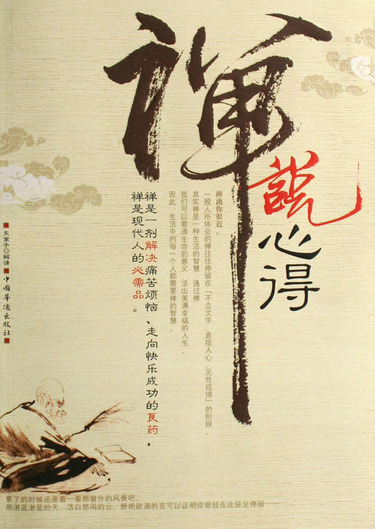 禅
说
心得
禅离你很近。
一般人所体会的禅往往停留在“不立文字，直指人心，见性成佛”的阶段，
其实禅是一种生活的智慧，通过禅，
我们可以看清生命的意义，活出美满幸福的人生，
因此，生活中的每一个人都需要禅的智慧。
禅是一剂解决痛苦烦恼、走向快乐成功的良药，
禅是现代人的必需品。
中国华侨出版社
累了的时候还是看一看那窗外的风景吧，
那湛蓝湛蓝的天，洁白悠闲的云，娇艳欲滴的花可以证明你曾经在此驻足停留……